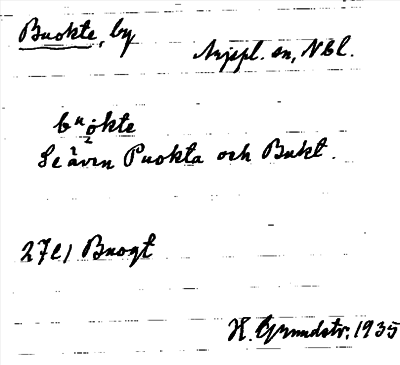 Buokte, by
Arjepl. sn, Nbl.
bᵘökte
Se även Puokta och Bukt.
27C1 Buogt
H. Grundstr. 1935